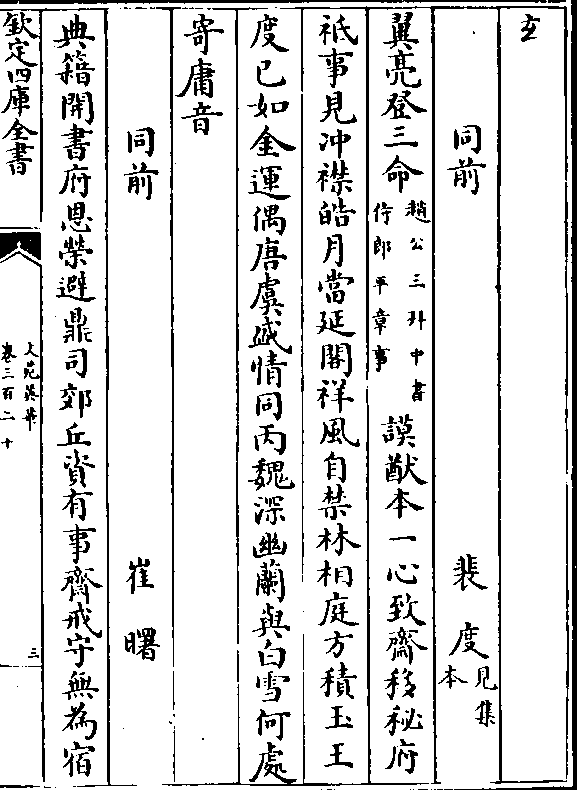 玄
同前 裴度見集本
翼亮登三命趙公三拜中書侍郎平章事謨猷本一心致齋移秘府
祗事見冲襟皓月當延閣祥風自禁林相庭方積玉王
度已如金運偶唐虞盛情同丙魏深幽蘭與白雪何處
寄庸音
同前 崔曙
典籍開書府恩榮避鼎司郊丘資有事齋戒守無為宿
欽定四庫全書
文苑英華
卷三百二十
三